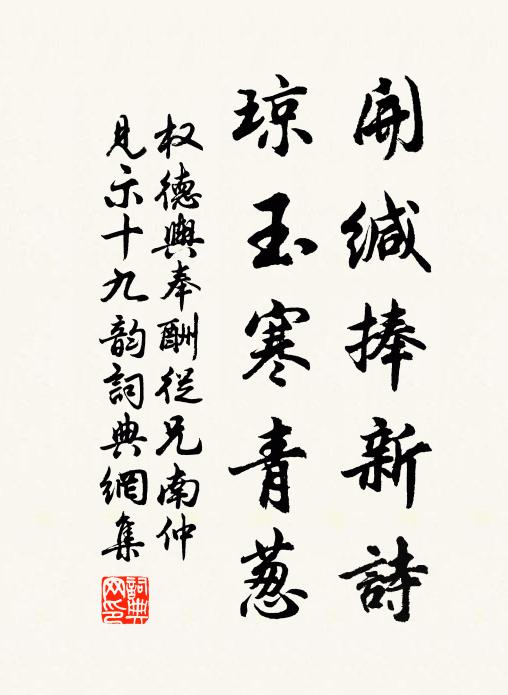 開緘捧新詩
琼玉寒青葱
权德輿奉酬從兄南仲
見示十九韵詞典網集
詞典网印